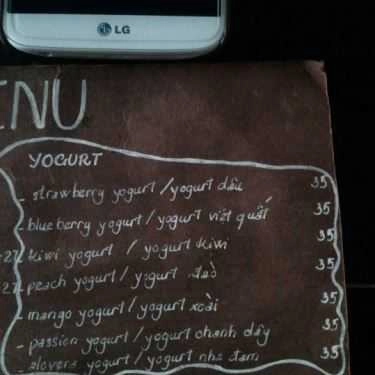 LG
ENU
YOGURT
- strawberry yogurt / yogurt dâu 35
- blueberry yogurt / yogurt việt quất 35
27 kiwi yogurt / yogurt kiwi 35
27 - peach yogurt / yogurt đào 35
- mango yogurt / yogurt xoài 35
- passion yogurt / yogurt chanh dây 35
- elovera yogurt / yogurt nha đam 35